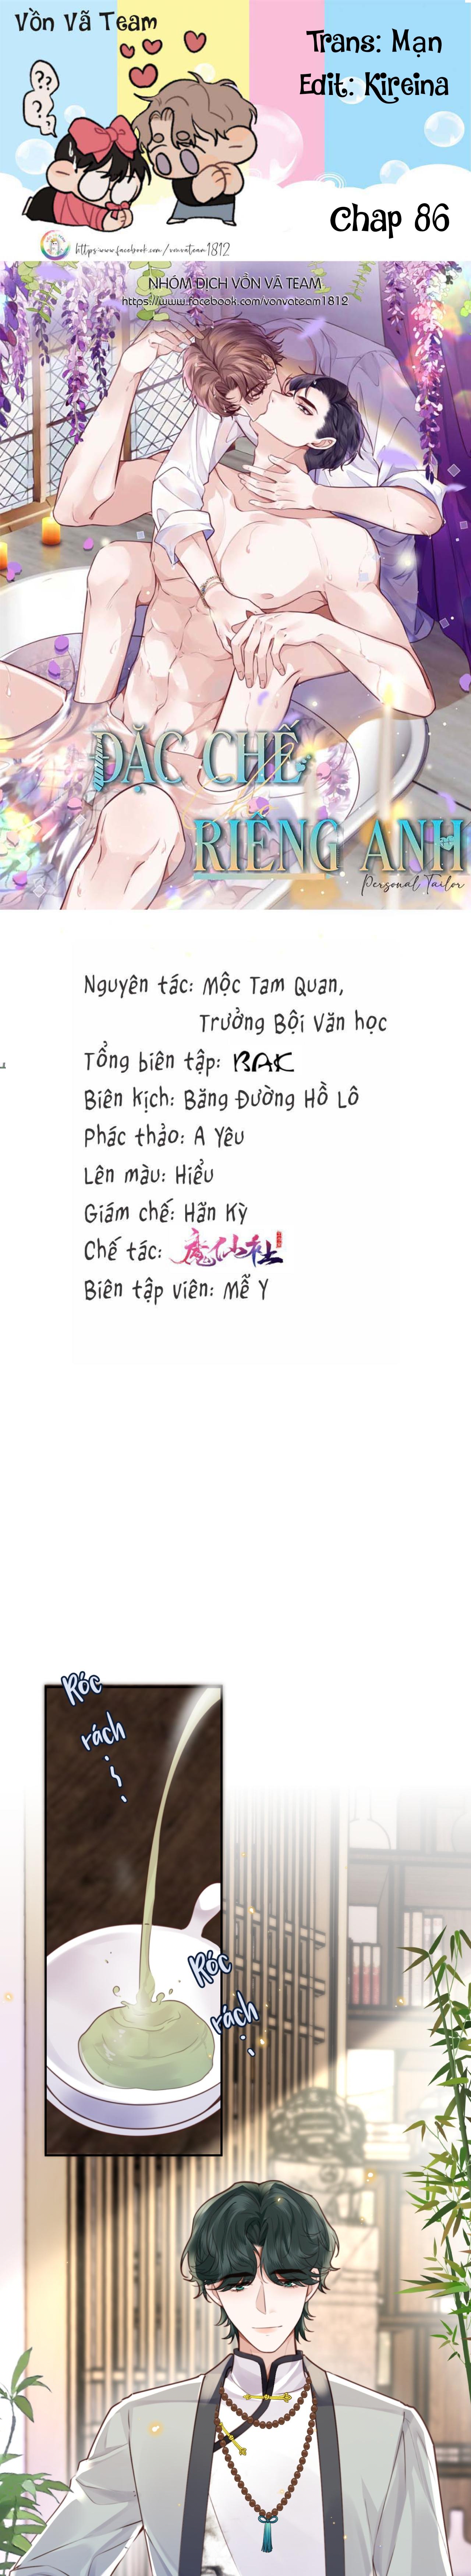 Vồn Vã Team
Trans: Mạn
Edit: Kireina
??
?
Chap 86
https:www.facebook.com/vonvateam1812
NHÓM DỊCH VỒN VÃ TEAM
https://www.facebook.com/vonvateam1812
ĐẶC CHẾ
RIÊNG ANH
Personal Tailor
Nguyên tác: Mộc Tam Quan,
Trưởng Bội Văn học
Tổng biên tập: BAK
Biên kịch: Băng Đường Hồ Lô
Phác thảo: A Yêu
Lên màu: Hiểu
Giám chế: Hãn Kỳ
Chế tác: 魔仙社
Biên tập viên: Mễ Y
Róc
rách
Róc
rách